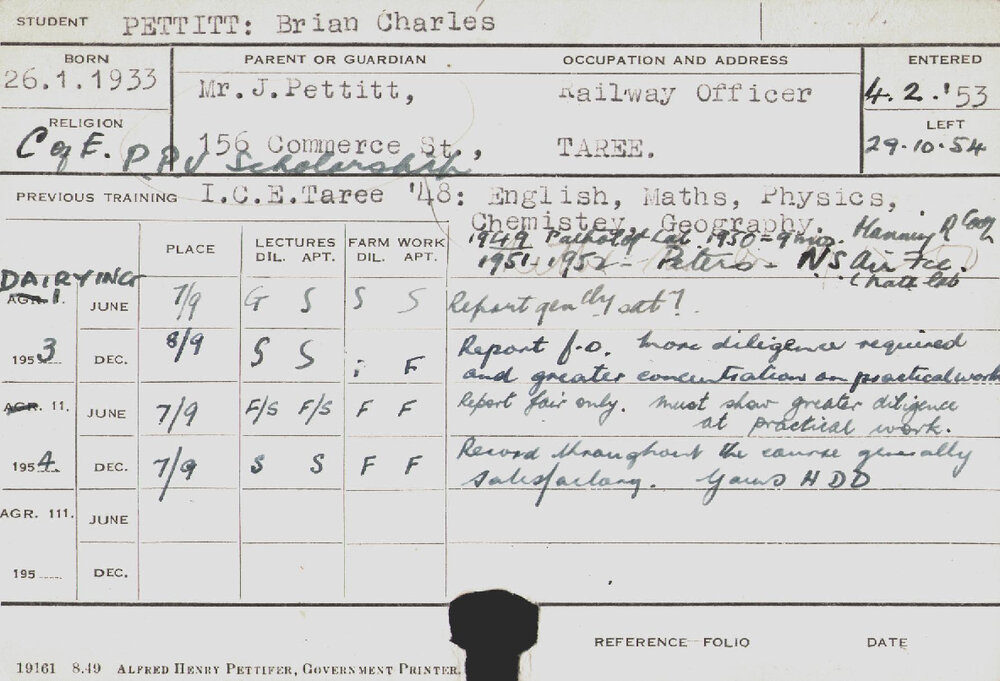 STUDENT PETTITT: Brian Charles
BORN PARENT OR GUARDIAN OCCUPATION AND ADDRESS ENTERED
26.1.1933 Mr.J.Pettitt, Railway Officer 4.2.'53
RELIGION LEFT
C of E. 156 Commerce St., TAREE. 29.10.54
Scholarship
PREVIOUS TRAINING I.C.E.Taree '48: English, Maths, Physics,
Chemistey, Geography.
1949 Lab. 1950 = 9 mos.
1951-1952 - Peters - NS Air Fce.
PLACE LECTURES FARM WORK
DIL. APT. DIL. APT.
DAIRYING
AGR. 1. JUNE 7/9 G S S S Report genlly sat?
1953 DEC. 8/9 S S F Report f.o. More diligence required
and greater concentration on practical work
AGR. 11. JUNE 7/9 F/S F/S F F Report fair only. Must show greater diligence
at practical work.
1954 DEC. 7/9 S S F F Record throughout the course generally
satisfactory. Gains HDD
AGR. 111. JUNE
195 DEC.
REFERENCE FOLIO DATE
19161 8.49 ALFRED HENRY PETTIFER, GOVERNMENT PRINTER.